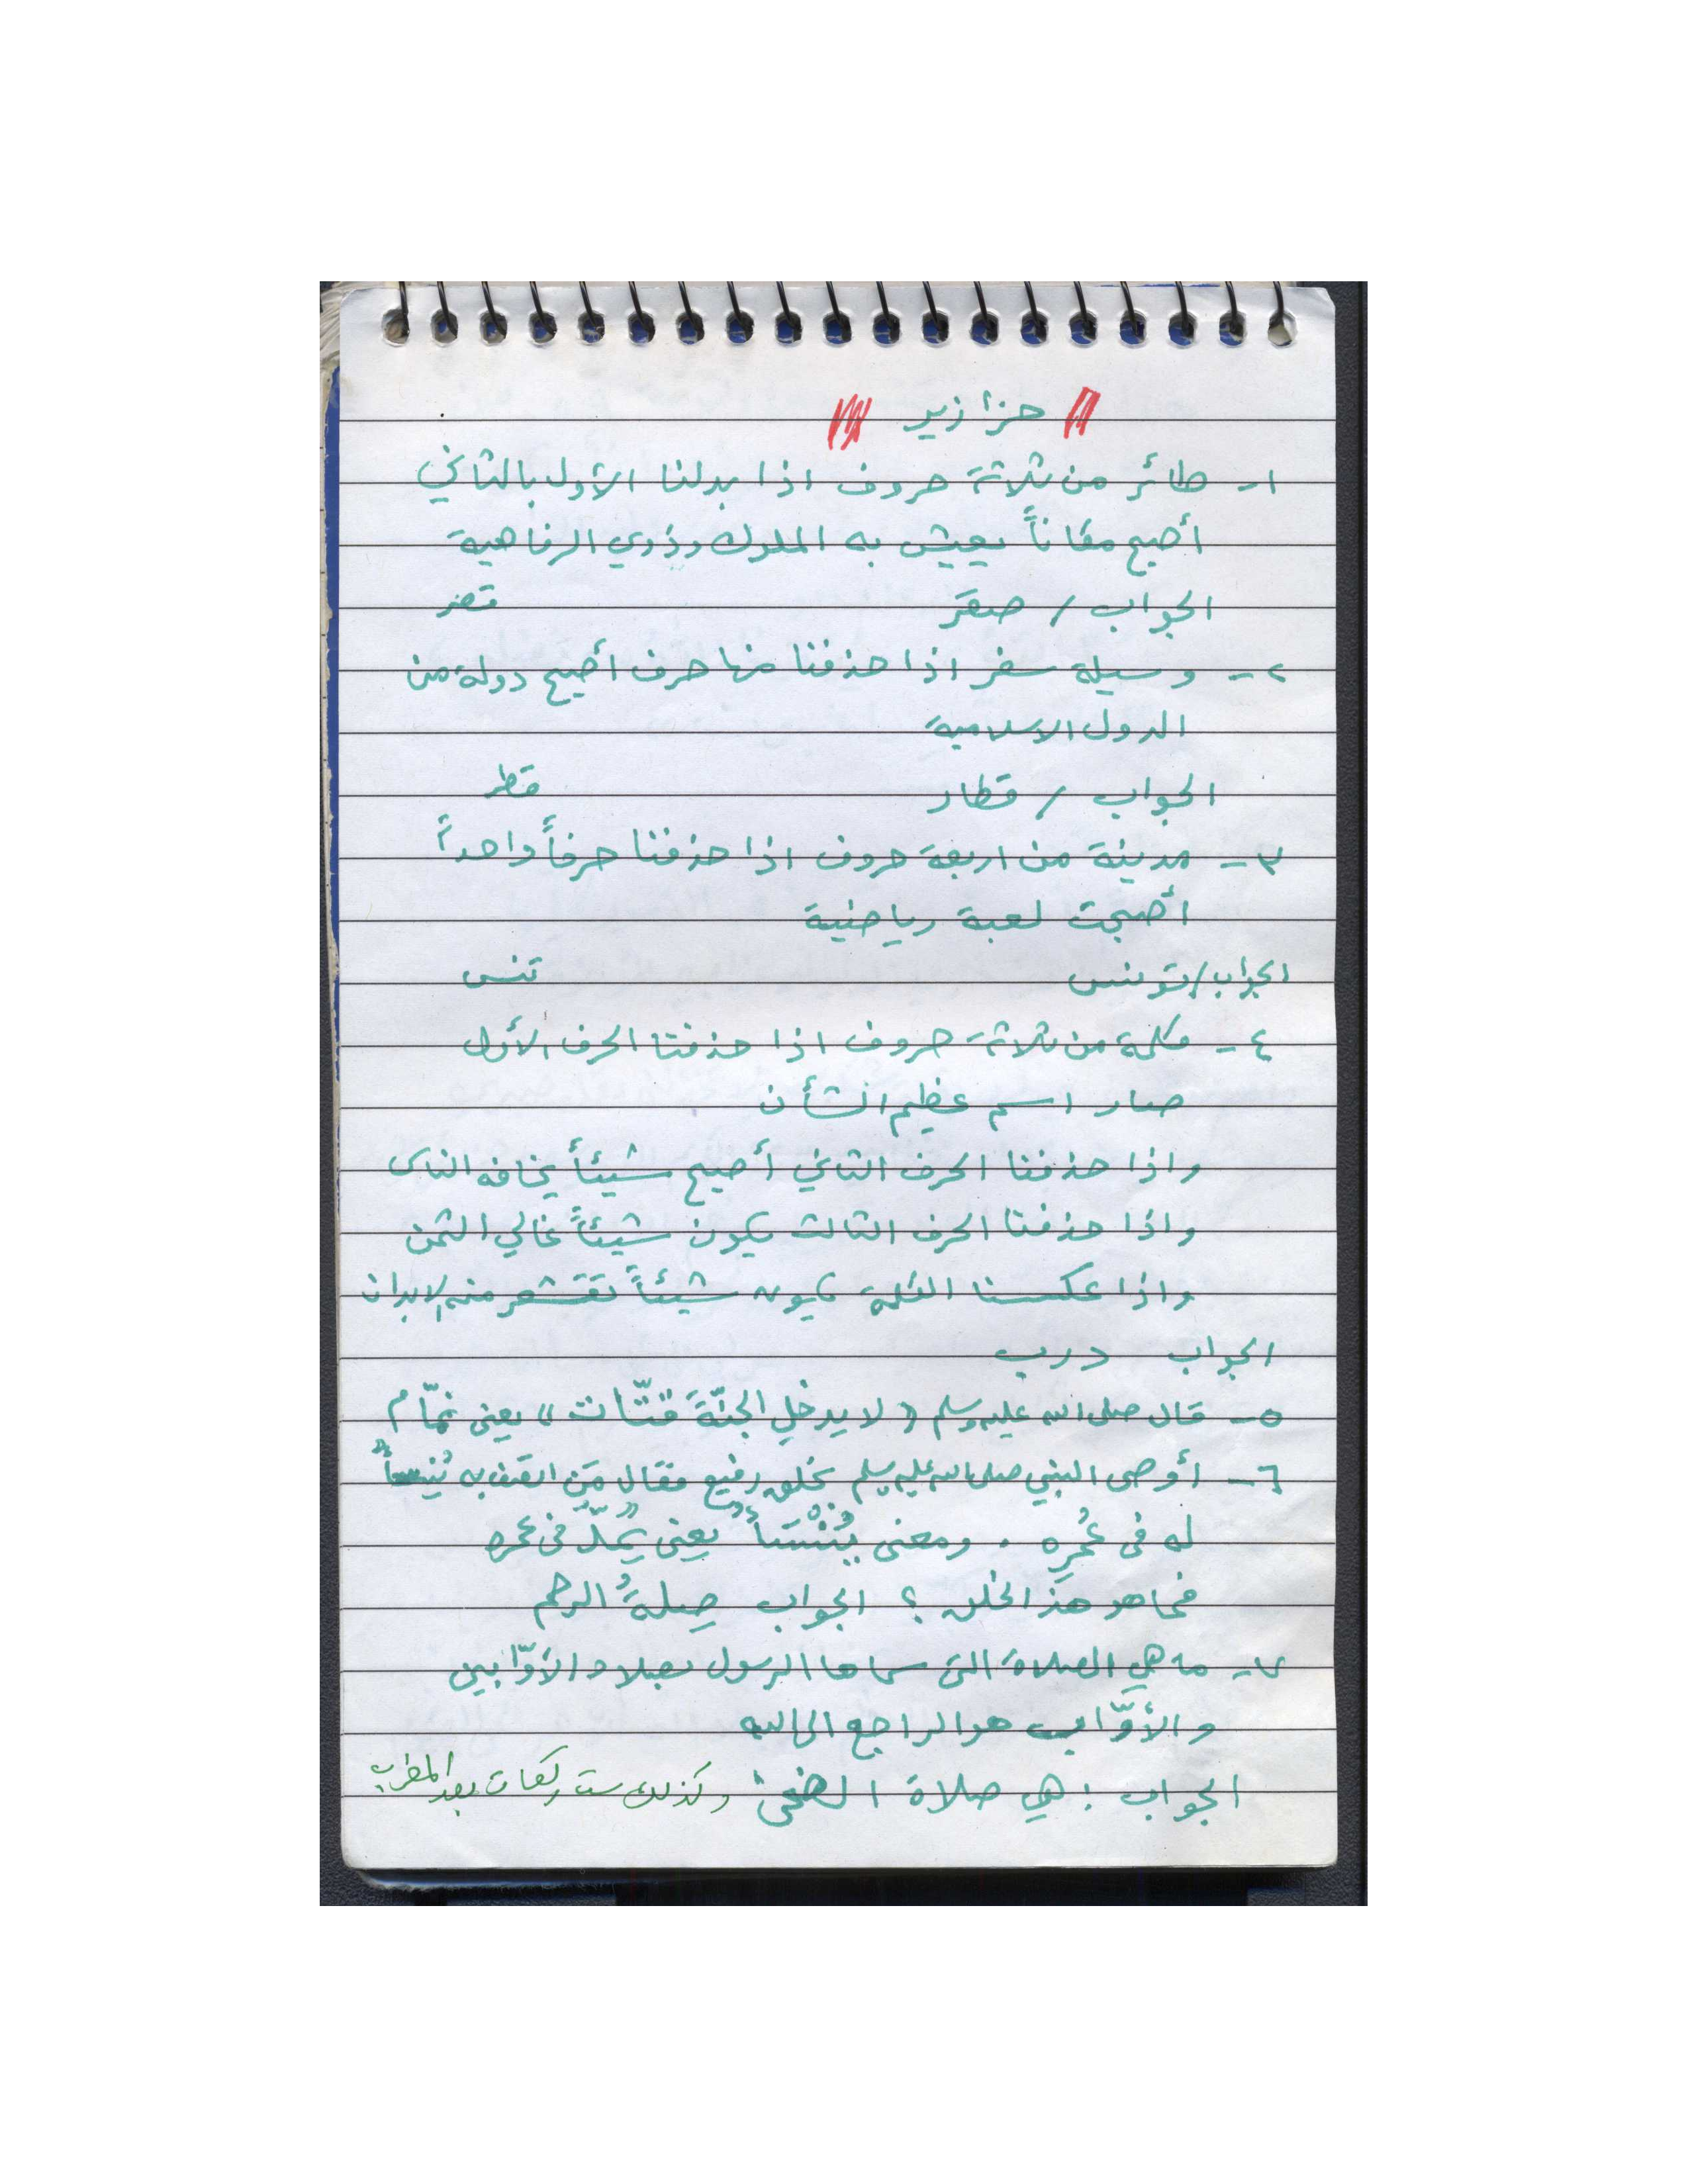 حزازير
١- طائر من ثلاثة حروف اذا بدلنا الأول بالثاني
أصبح مكاناً يعيش به الملوك وذوي الرفاهية
الجواب / صقر قصر
٢- وسيلة سفر اذا حذفنا منها حرف أصبح دولة من
الدول الاسلامية
الجواب / قطار قطر
٣- مدينة من اربعة حروف اذا حذفنا حرفاً واحداً
أصبحت لعبة رياضية
الجواب / تونس تنس
٤- كلمة من ثلاثة حروف اذا حذفنا الحرف الأول
صار اسم عظيم الشأن
واذا حذفنا الحرف الثاني أصبح شيئاً يخافه الناس
واذا حذفنا الحرف الثالث يكون شيئاً غالي الثمن
واذا عكسنا الكلمة يكون شيئاً تقشعر منه الابدان
الجواب درب
٥- قال صلى الله عليه وسلم « لا يدخل الجنّةَ قتّات » يعنى نمّام
٦- أوصى النبي صلى الله عليه وسلم بخلق رفيع فقال مَن اتصف به يُنسأ
له فى عُمرِه . ومعنى يُنْسَأ يعنى يُمدّ فى عمره
فما هو هذا الخلق ؟ الجواب صِلةُ الرحم
٧- ما هي الصلاة التى سماها الرسول بصلاة الأوّابين
والأوَّاب هو الراجع الى الله
الجواب : هي صلاة الضحى وكذلك ست ركعات بعد المغرب